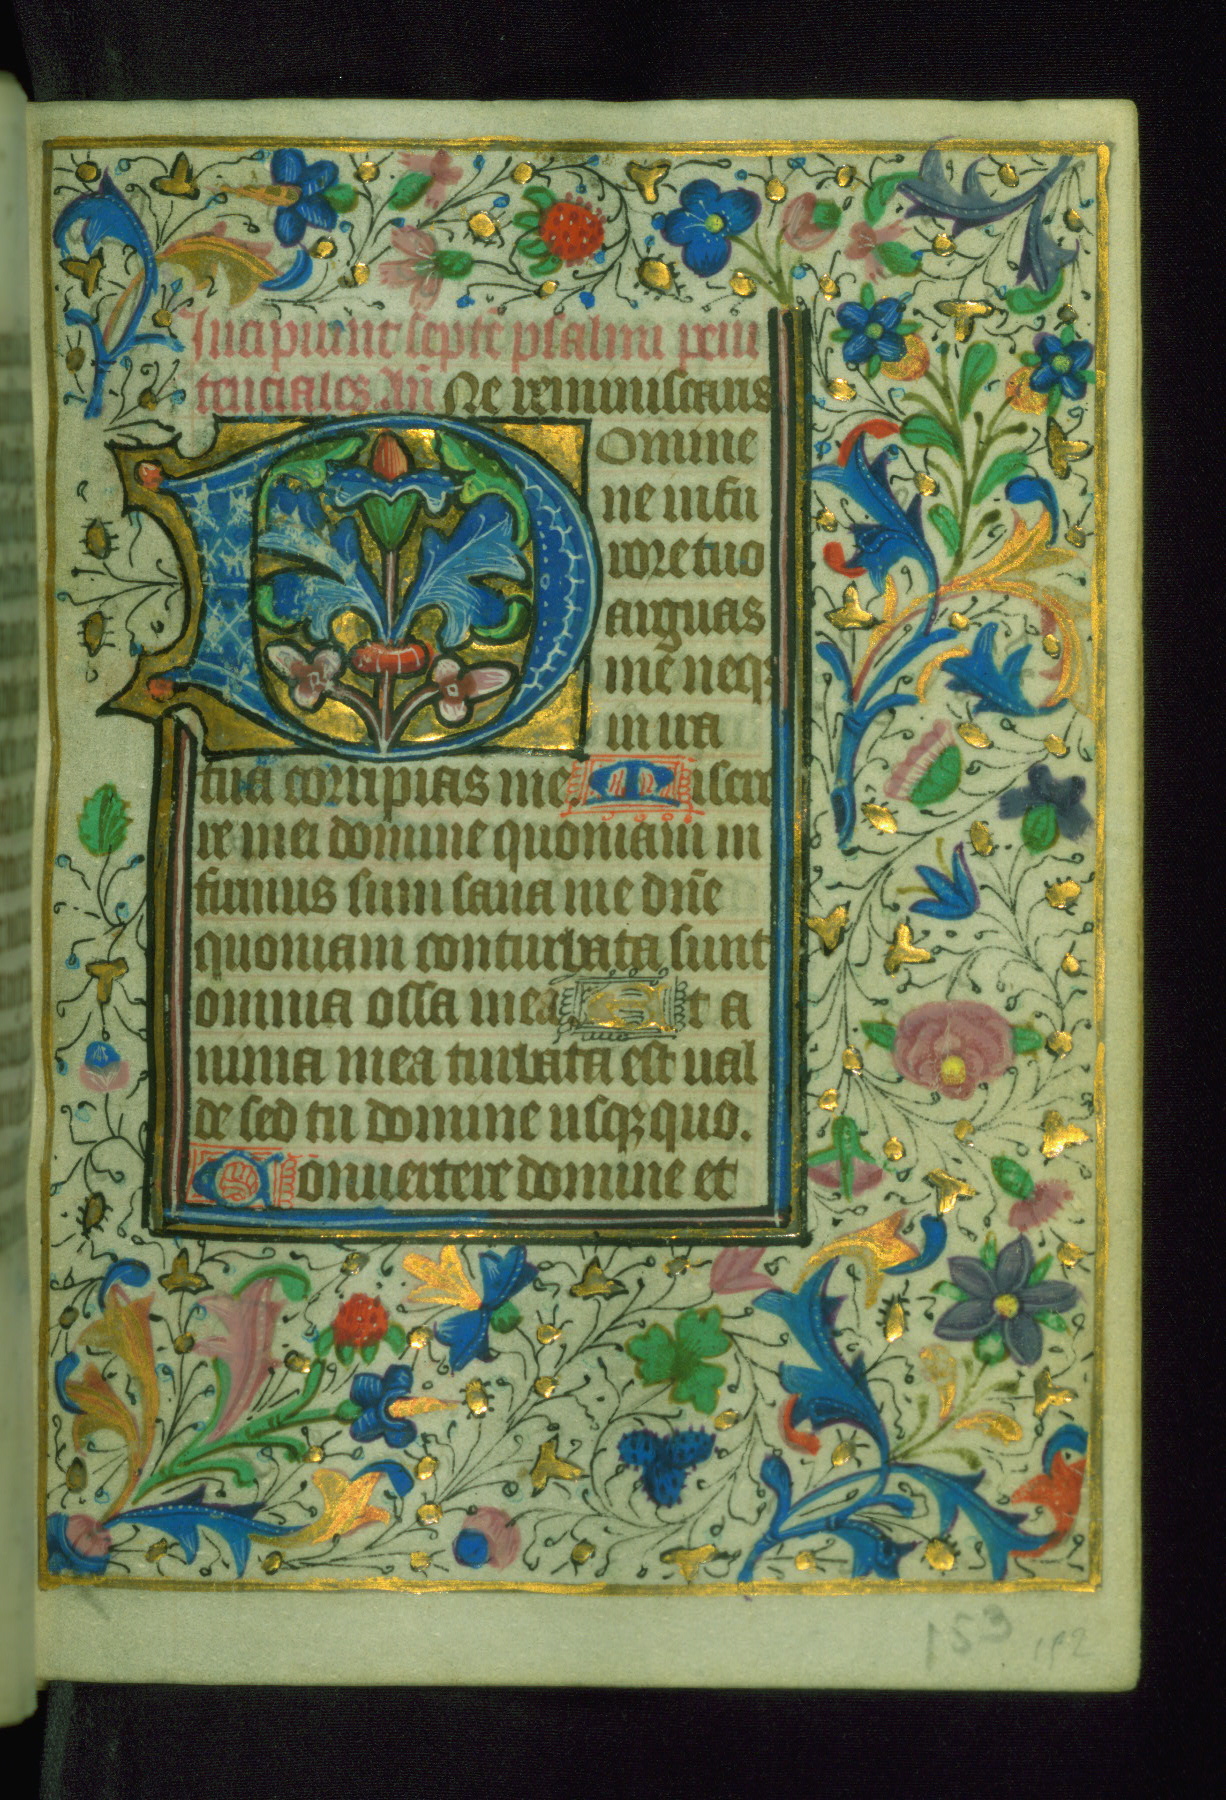 Incipiunt septē psalmi peni
tenciales. Añ Ne reminiscaris
Domine
ne in fu
rore tuo
arguas
me neqꝫ
in ira
tua corripias me Misere
re mei domine quoniam in
firmus sum sana me dn̄e
quoniam conturbata sunt
omnia ossa mea Et a
nima mea turbata est ual
de sed tu domine usqꝫ quo.
Conuertere domine et
153